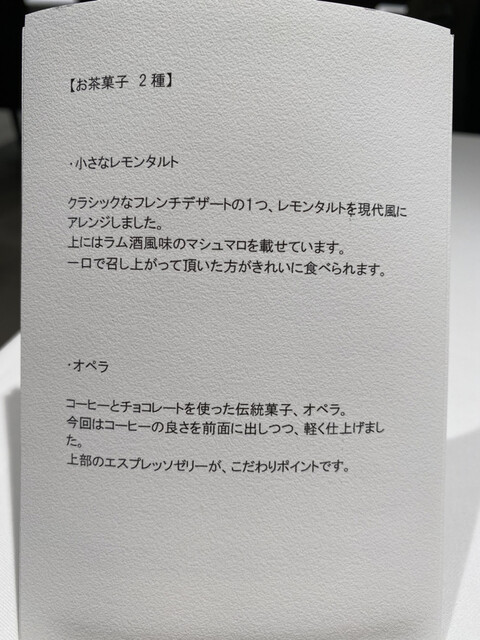 【お茶菓子 2種】
・小さなレモンタルト
クラシックなフレンチデザートの1つ、レモンタルトを現代風に
アレンジしました。
上にはラム酒風味のマシュマロを載せています。
一口で召し上がって頂いた方がきれいに食べられます。
・オペラ
コーヒーとチョコレートを使った伝統菓子、オペラ。
今回はコーヒーの良さを前面に出しつつ、軽く仕上げまし
た。
上部のエスプレッソゼリーが、こだわりポイントです。